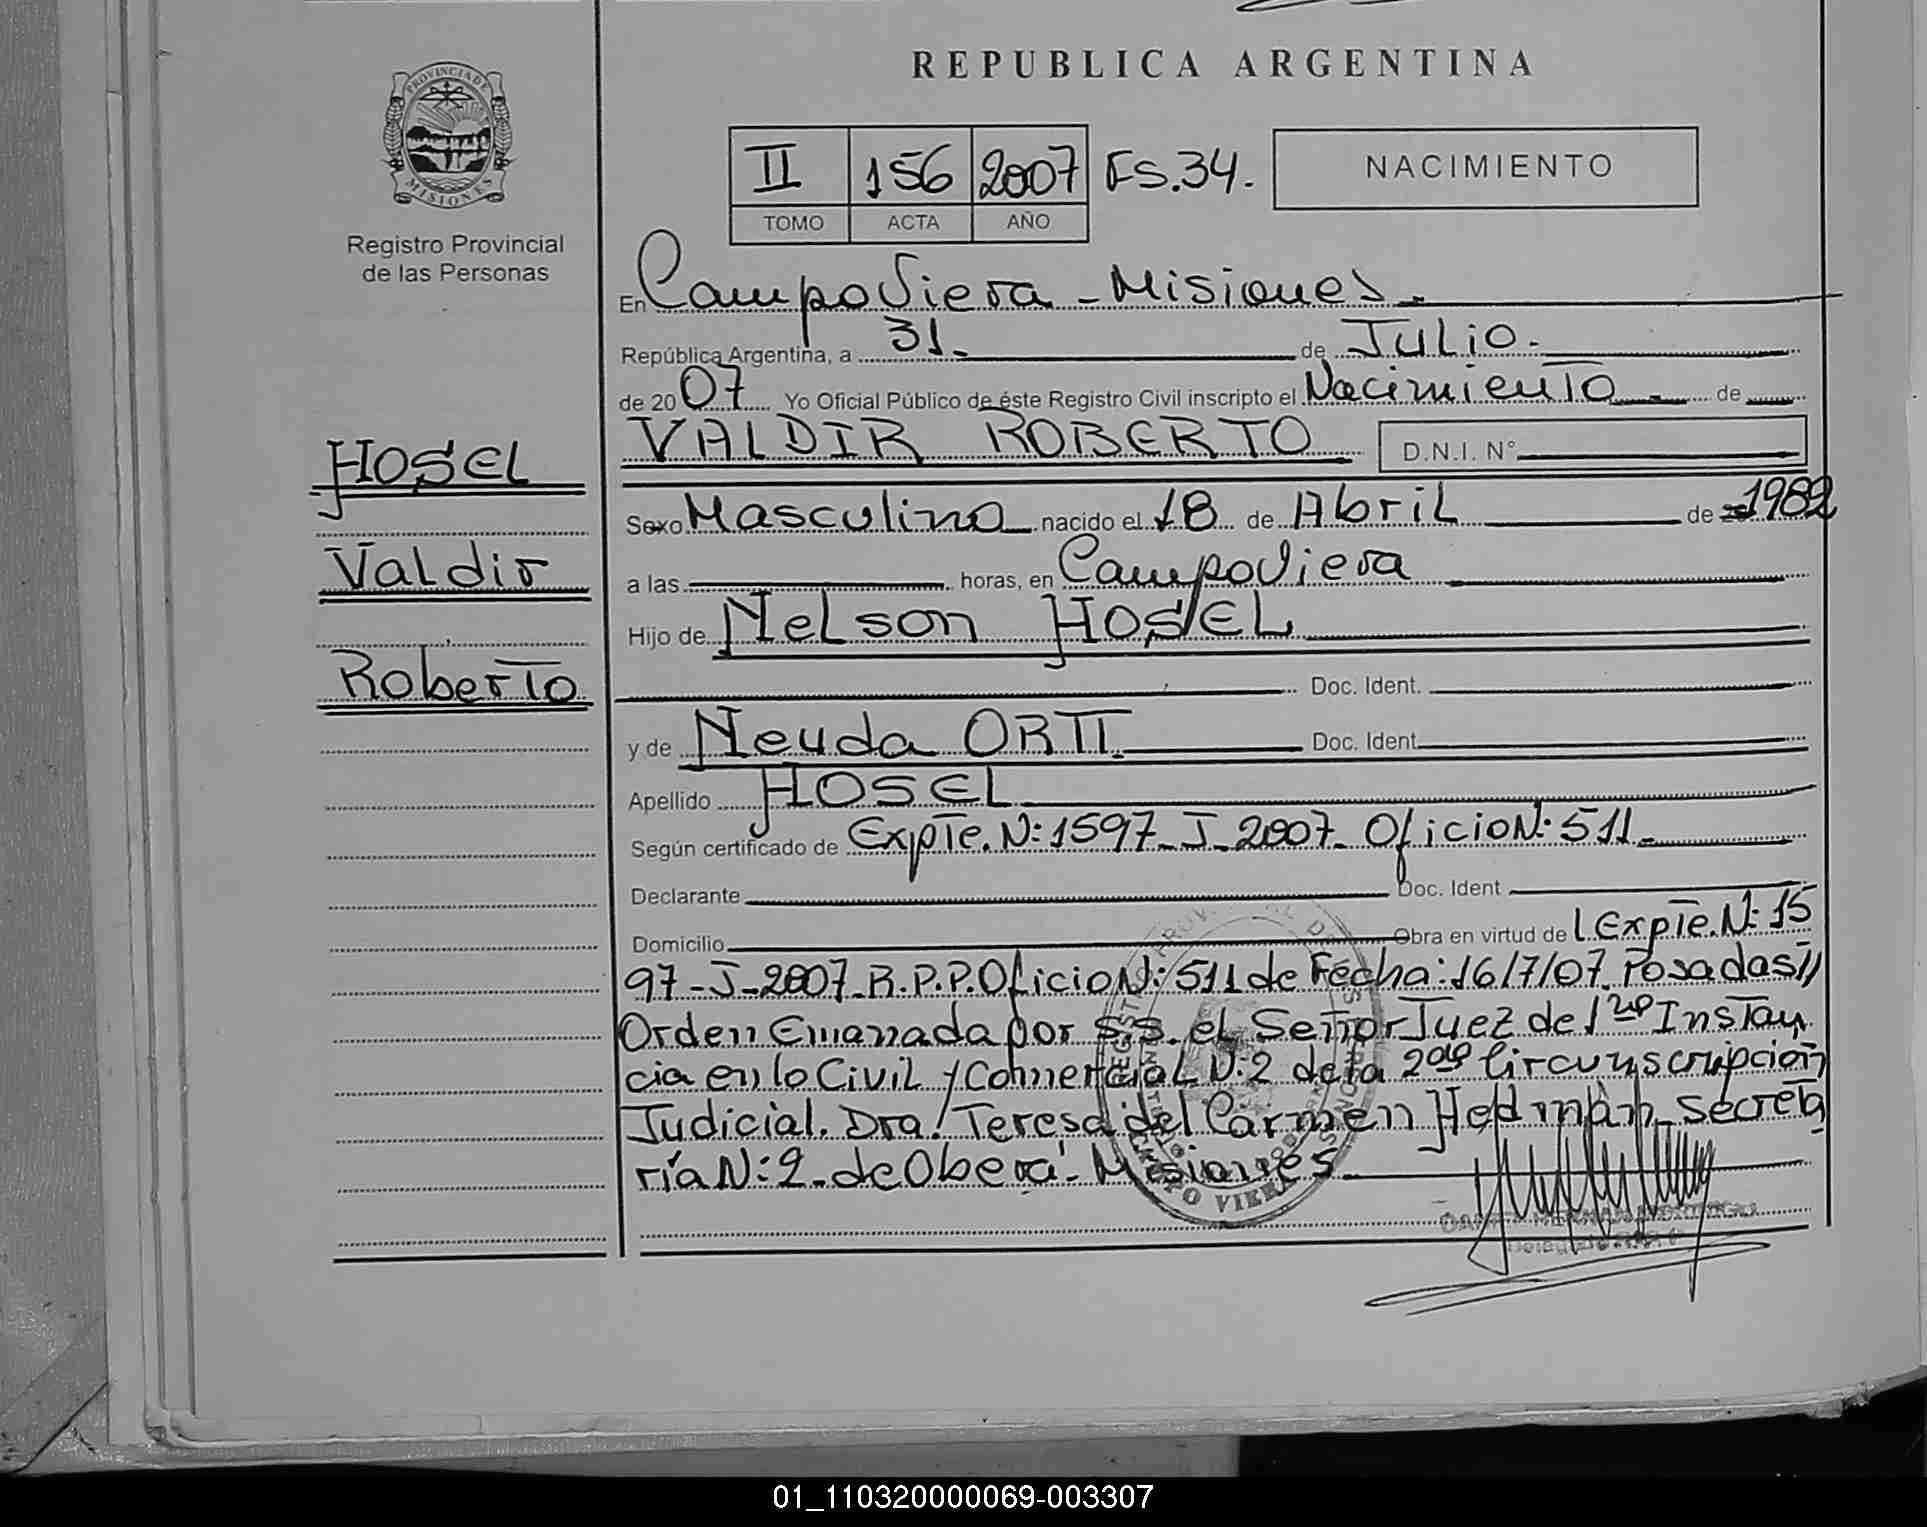 REPUBLICA ARGENTINA
PROVINCIA DE
MISIONES
Registro Provincial
de las Personas
II 156 2007 Fs.34.
TOMO ACTA AÑO
NACIMIENTO
En Campo Viera - Misiones.
República Argentina, a 31. de Julio.
de 2007 Yo Oficial Público de éste Registro Civil inscripto el Nacimiento de
VALDIR ROBERTO D.N.I. N°
HOSEL
Sexo Masculino nacido el 18 de Abril de 1982
Valdir
a las horas, en Campo Viera
Hijo de Nelson HOSEL
Roberto
Doc. Ident.
y de Neuda ORTT Doc. Ident.
Apellido HOSEL
Según certificado de Expte. N: 1597-J-2007- Oficio N: 511
Declarante Doc. Ident
Domicilio Obra en virtud del Expte. N: 15
97-J-2007-R.P.P. Oficio N: 511 de Fecha: 16/7/07. Posadas//
Orden Emanada por S.S. el Señor Juez de 1ra Instan
cia en lo Civil y Comercial N:2 de la 2da Circunscripción
Judicial. Dra. Teresa del Carmen Hedman Secreta
ría N: 2- de Oberá- Misiones
CAMPO VIERA
01_110320000069-003307